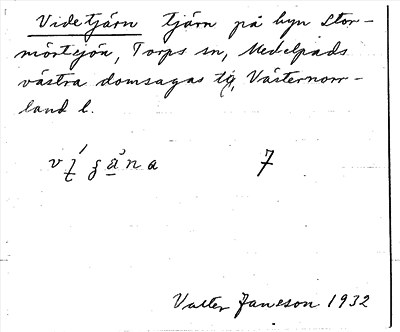 Videtjärn tjärn på byn Stor-
mörtsjön, Torps sn, Medelpads
västra domsagas tg, Västernorr-
lands l.
7
Valter Jansson 1932